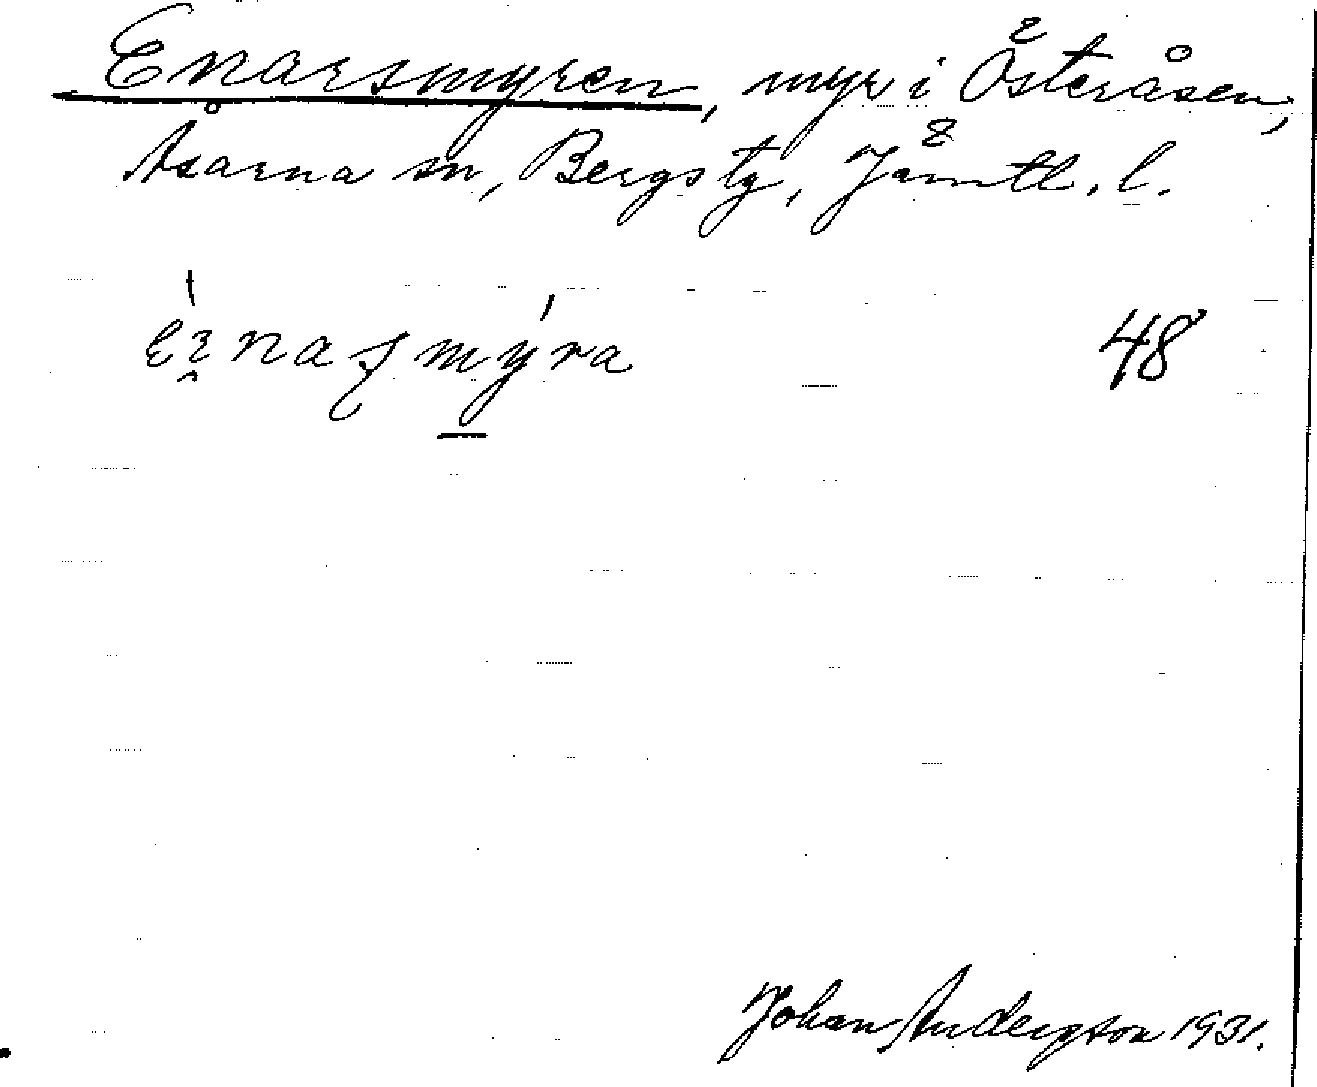 Enarsmyren, myr i Österåsen,
Åsarna sn, Bergs tg, Jämtl. l.
48
Johan Andergson 1931.